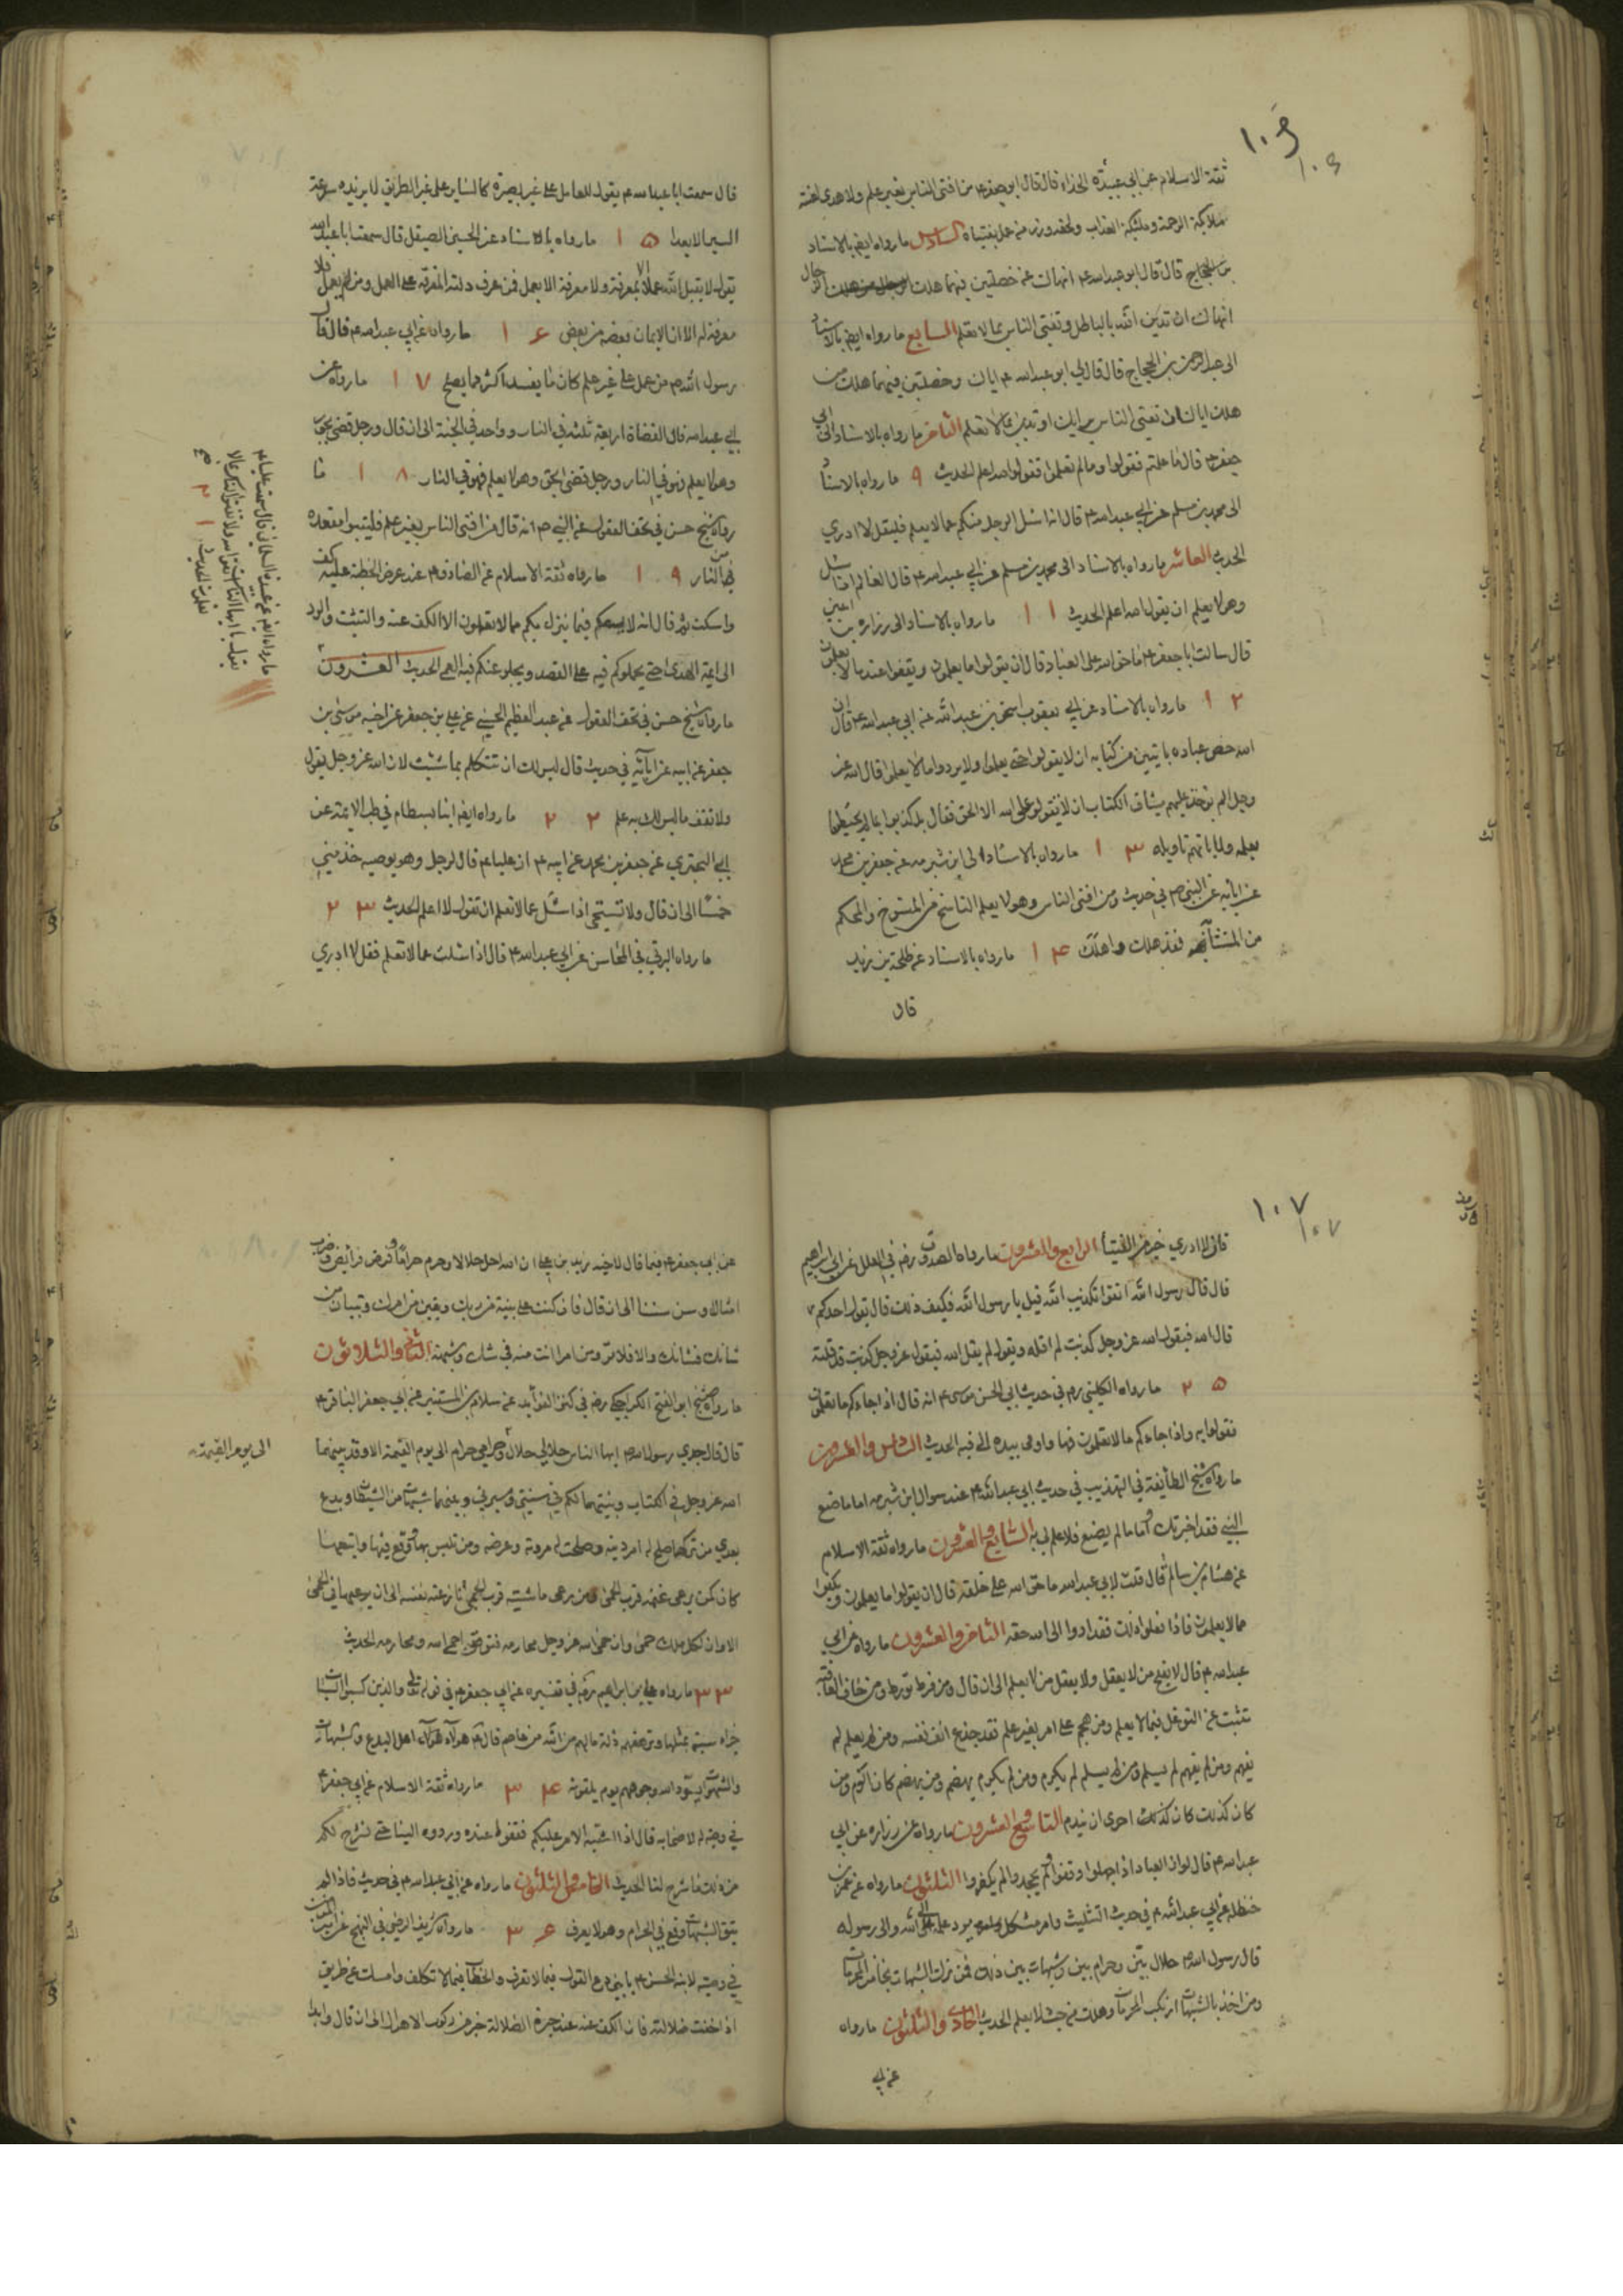 ١٠٦
١٠٦
ثقة الاسلام عن ابي عبيدة الحذاء قال قال ابو جعفر ع من افتى الناس بغير علم ولا هدى لعنته
ملائكة الرحمة وملئكة العذاب ولحقه وزر من عمل بفتياه السادس ما رواه ايضا بالاسناد
بن الحجاج قال قال ابو عبدالله ع انهاك عن خصلتين فيهما هلك الرجال
انهاك ان تدين الله بالباطل وتفتى الناس بما لا تعلم السابع ما رواه ايضا بالاسناد
الى عبد الرحمن بن الحجاج قال قال لي ابو عبدالله ع اياك وخصلتين فيهما هلك من
هلك اياك ان تفتى الناس برايك او تدين بما لا تعلم الثامن ما رواه بالاسناد الى ابي
جعفر ع قال ما علمتم فقولوا وما لم تعلموا فقولوا الله اعلم الحديث ٩ ما رواه بالاسناد
الى محمد بن مسلم عن ابي عبدالله ع قال اذا سئل الرجل منكم عما لا يعلم فليقل لا ادري
الحديث العاشر ما رواه بالاسناد الى محمد بن مسلم عن ابي عبدالله ع قال للعالم اذا سئل
وهو لا يعلم ان يقول الله اعلم الحديث ١١ ما رواه بالاسناد الى زرارة بن اعين
قال سالت ابا جعفر ع ما حق الله على العباد قال ان يقولوا ما يعلمون ويقفوا عند ما لا يعلمون
١٢ ما رواه بالاسناد عن ابي يعقوب اسحق بن عبدالله عن ابي عبدالله ع قال ان
الله خص عباده بايتين من كتابه ان لا يقولوا حتى يعلموا ولا يردوا ما لا يعلموا قال الله عز
وجل الم يوخذ عليهم ميثاق الكتاب ان لا يقولوا على الله الا الحق فقال بل كذبوا بما لم يحيطوا
بعلمه ولما ياتهم تاويله ١٣ ما رواه بالاسناد الى ابن شبرمه عن جعفر بن محمد
عن ابائه عن النبي ص في حديث ومن افتى الناس وهو لا يعلم الناسخ من المنسوخ والمحكم
من المتشابه فقد هلك واهلك ١٤ ما رواه بالاسناد عن طلحة بن زيد
قال
قال سمعت ابا عبدالله ع يقول العامل على غير بصيرة كالساير على غير الطريق لا يزيده سرعة
السير الا بعدا ١٥ ما رواه بالاسناد عن الحسين الصيقل قال سمعت ابا عبدالله
يقول لا يقبل الله عملا الا بمعرفة ولا معرفة الا بعمل فمن عرف دلته المعرفة على العمل ومن لم يعمل فلا
معرفة له الا ان الايمان بعضه من بعض ١٦ ما رواه عن ابي عبدالله ع قال قال
رسول الله ص من عمل على غير علم كان ما يفسد اكثر مما يصلح ١٧ ما رواه عن
ابي عبدالله قال القضاة اربعة ثلثة في النار وواحد في الجنة الى ان قال ورجل قضى بحق
وهو لا يعلم فهو في النار ورجل قضى بالحق وهو يعلم فهو في النار ١٨ ما
رواه شيخ حسن في تحف العقول عن النبي ص انه قال من افتى الناس بغير علم فليتبوا مقعده
من النار ١٩ ما رواه ثقة الاسلام عن الصادق ع عند عرض الخطبة عليه كف
واسكت ثم قال انه لا يسعكم فيما ينزل بكم مما لا تعلمون الا الكف عنه والتثبت والرد
الى ائمة الهدى حتى يحملوكم فيه على القصد ويجلو عنكم فيه العمى الحديث العشرون
ما رواه شيخ حسن في تحف العقول عن عبد العظيم الحسيني عن علي بن جعفر عن اخيه موسى بن
جعفر عن ابيه عن ابائه في حديث قال ليس لك ان تتكلم بما شئت لان الله عز وجل يقول
ولا تقف ما ليس لك به علم ٢٢ ما رواه ايضا ابنا بسطام في طب الائمة عن
ابي البختري عن جعفر بن محمد عن ابيه ع ان عليا ع قال لرجل وهو يوصيه خذ مني
خمسا الى ان قال ولا تستحي اذا سئل عما لا تعلم ان تقول لا اعلم الحديث ٢٣
ما رواه البرقي في المحاسن عن ابي عبدالله ع قال اذا سئلت عما لا تعلم فقل لا ادري
ما رواه ايضا عن عبيدة السلماني قال سمعت عليا ع
يقول يا ايها الناس اتقوا الله ولا تفتوا الناس بما لا
تعلمون الحديث ٢١ صح
١٠٧
١٠٧
فان لا ادري خير من الفتيا الرابع والعشرون ما رواه الصدوق رض في العلل عن ابي ابراهيم
قال قال رسول الله اتقوا تكذيب الله قيل يا رسول الله فكيف ذلك قال يقول احدكم
قال الله فيقول الله عز وجل كذبت لم اقله ويقول لم يقل الله فيقول عز وجل كذبت قد قلته
٢٥ ما رواه الكليني ره في حديث ابي الحسن موسى ع انه قال اذا جاءكم ما تعلمون
فقولوا به واذا جاءكم ما لا تعلمون فها واومى بيده الى فيه الحديث السادس والعشرون
ما رواه شيخ الطائفة في التهذيب في حديث ابي عبدالله ع عند سوال ابن شبرمه اما ما صنع
النبي فقد اخبرتك واما ما لم يصنع فلا علم لي به السابع والعشرون ما رواه ثقة الاسلام
عن هشام بن سالم قال قلت لابي عبدالله ما حق الله على خلقه قال ان يقولوا ما يعلمون ويكفوا
عما لا يعلمون فاذا فعلوا ذلك فقد ادوا الى الله حقه الثامن والعشرون ما رواه عن ابي
عبدالله ع قال لا يفلح من لا يعقل ولا يعقل من لا يعلم الى ان قال ومن فرط تورط ومن خاف العاقبة
تثبت عن التوغل فيما لا يعلم ومن هجم على امر بغير علم فقد جدع انف نفسه ومن لم يعلم لم
يفهم ومن لم يفهم لم يسلم ومن لم يسلم لم يكرم ومن لم يكرم يهضم ومن يهضم كان الوم ومن
كان كذلك كان كذلك احرى ان يندم التاسع والعشرون ما رواه عن زراره عن ابي
عبدالله ع قال لو ان العباد اذا جهلوا وقفوا ولم يجحدوا لم يكفروا الثلثون ما رواه عن عمر بن
حنظله عن ابي عبدالله ع في حديث التثليث وامر مشكل يرد علمه الى الله والى رسوله
قال رسول الله ص حلال بين وحرام بين وشبهات بين ذلك فمن ترك الشبهات نجا من المحرمات
ومن اخذ بالشبهات ارتكب المحرمات وهلك من حيث لا يعلم الحديث الحادي والثلثون ما رواه
عن ابي
عن ابي جعفر ع فيما قال لاخيه زيد بن علي ان الله احل حلالا وحرم حراما وفرض فرائض وضرب
امثالا وسن سننا الى ان قال فان كنت على بينة من ربك ويقين من امرك وتبيان من
شانك فشانك والا فلا ترومن امرا انت منه في شك وشبهة الثاني والثلاثون
ما رواه شيخ ابو الفتح الكراجكي رض في كنز الفوائد عن سلام بن المستنير عن ابي جعفر الباقر ع
قال قال جدي رسول الله ص ايها الناس حلالي حلال وحرامي حرام الى يوم القيمة الا وقد بينهما
الى يوم القيمة
الله عز وجل في الكتاب وبينتهما لكم في سنتي وسيرتي وبينهما شبهات من الشيطان وبدع
بعدي من تركها صلح له امر دينه وصلحت له مروته وعرضه ومن تلبس بها وقع فيها واتبعها
كان كمن يرعى غنمه قرب الحمى ومن يرعى ماشيته قرب الحمى نازعته نفسه الى ان يرعيها في الحمى
الا وان لكل ملك حمى وان حمى الله عز وجل محارمه فتوقوا حمى الله ومحارمه الحديث
٣٣ ما رواه علي بن ابراهيم ره في تفسيره عن ابي جعفر ع في قوله تعالى والذين كسبوا السيئات
جزاء سيئة بمثلها وترهقهم ذلة ما لهم من الله من عاصم قال ع هولاء اهل البدع والشبهات
والشهوات يسود الله وجوههم يوم يلقونه ٣٤ ما رواه ثقة الاسلام عن ابي جعفر ع
في وصيته لاصحابه قال اذا اشتبه الامر عليكم فقفوا عنده وردوه الينا حتى نشرح لكم
من ذلك ما شرح لنا الحديث الخامس والثلثون ما رواه عن ابي عبدالله ع في حديث فاذا لم
يتق الشبهات وقع في الحرام وهو لا يعرف ٣٦ ما رواه شريف الرضي في النهج عن امير المومنين
في وصيته لابنه الحسن ع يا بني دع القول فيما لا تعرف والخطاب فيما لا تكلف وامسك عن طريق
اذا خفت ضلالته فان الكف عنه عند حيرة الضلالة خير من ركوب الاهوال الى ان قال وابدا